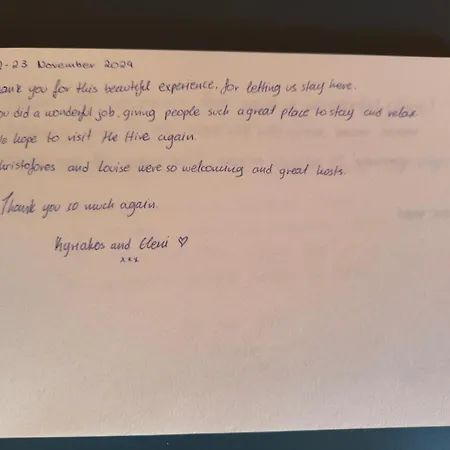 -23 November 2024
hank you for this beautiful experience, for letting us stay here.
ou did a wonderful job, giving people such a great place to stay and relax
e hope to visit the Hive again.
hristoforos and Louise were so welcoming and great hosts.
Thank you so much again.
Kyriakos and Eleni ♡
xxx